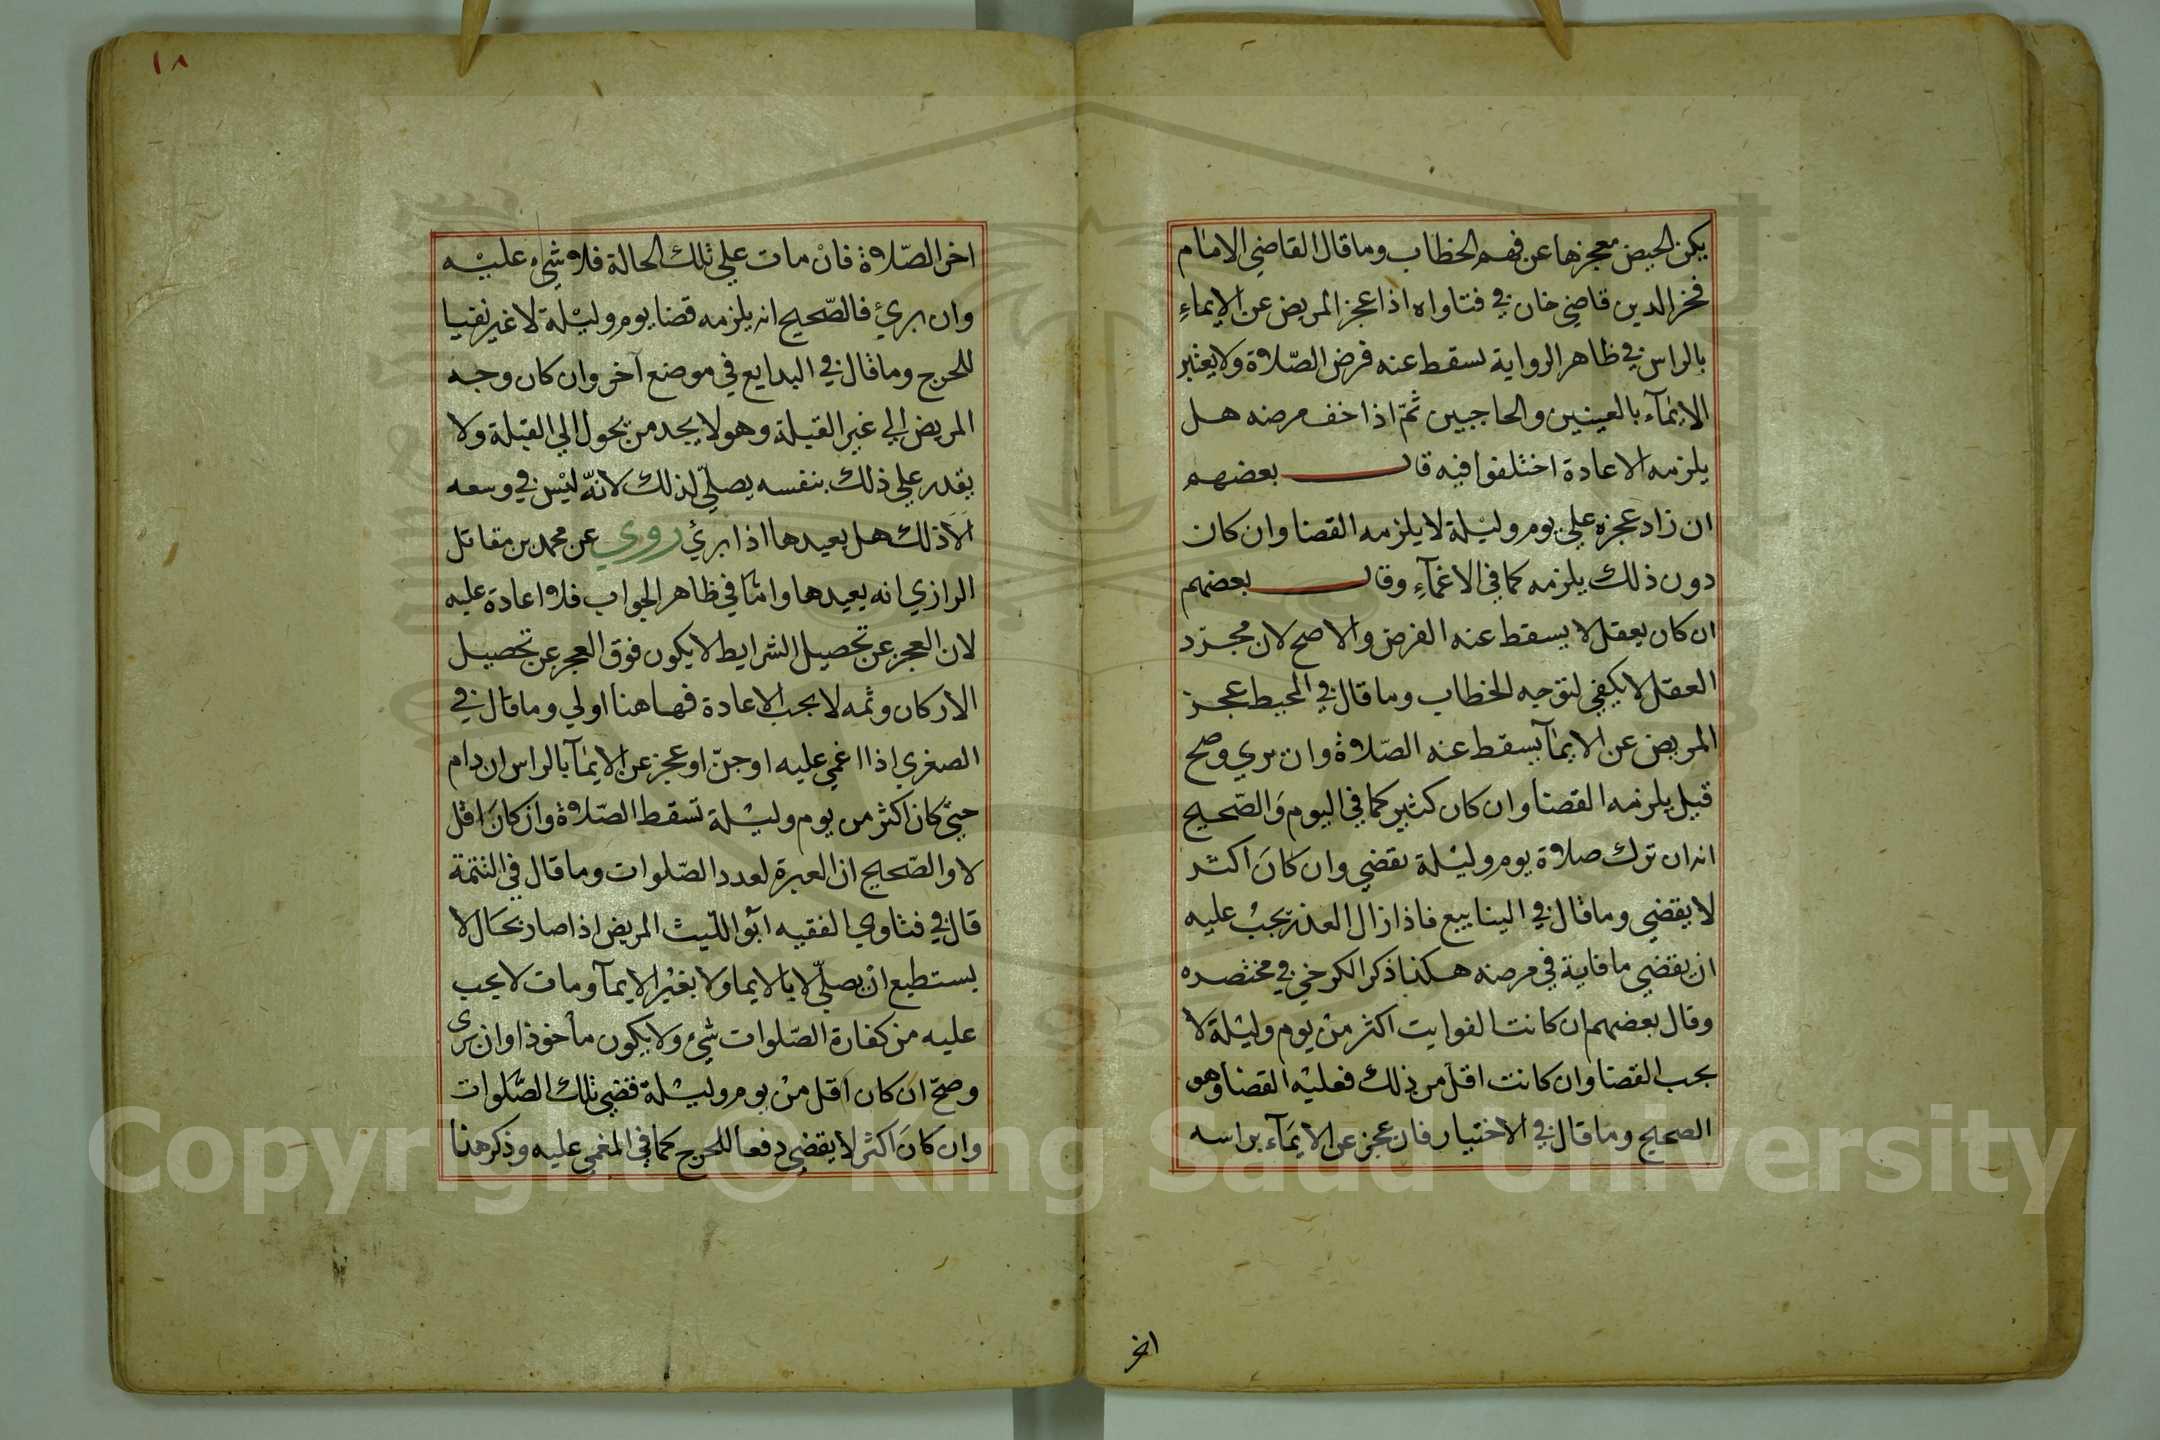 يكن الحيض معجزها عن فهم الخطاب وما قال القاضي الامام
فخر الدين قاضي خان في فتاواه اذا عجز المريض عن الإيماءِ
بالراس في ظاهر الرواية يسقط عنه فرض الصّلاة ولا يعتبر
الايمآء بالعينين والحاجبين ثمّ اذا خف مرضه هل
يلزمه الاعادة اختلفوا فيه قال بعضهم
ان زاد عجزه علي يوم وليلة لا يلزمه القضا وان كان
دون ذلك يلزمه كما في الاغمآءِ وقال بعضهم
ان كان يعقل لا يسقط عنه الفرض والاصح لان مجرّد
العقل لا يكفي لتوجيه الخطاب وما قال في المحيط عجز
المريض عن الايمآ يسقط عنه الصّلاة وان بري وصح
قيل يلزمه القضا وان كان كثير كما في اليوم وَالصّحيح
انه ان ترك صلاة يوم وليْلة يقضي وان كانَ اكثر
لا يقضي وما قال في الينابيع فاذا زال العذر يجبُ عليه
ان يقضي ما فاته في مرضه هكذا ذكر الكرخي في مختصره
وقال بعضهم ان كانت الفوايت اكثر منْ يوم وليْلة لا
يجب القضا وان كانت اقل من ذلك فعليْه القضا وهو
الصحيح وما قال في الاختيار فان عجز عن الايمَآء براسه
اخر
١٨
اخر الصّلاة فانْ مات علي تلك الحالة فلا شيء عليْه
وان برئ فالصّحيح انه يلزمه قضا يوم وليْلة لا غير نفيا
للحرج وما قال في البدايع في موضع آخر وان كان وجه
المريض الي غير القبلة وهو لا يجد من يحول الي القبلة ولا
يقدر علي ذلك بنفسه يصلّي لذلك لانّه ليْس في وسعه
الاّ ذلك هل يعيدها اذا برئ روي عن محمد بن مقاتل
الرازي انه يعيدها وامّا في ظاهر الجواب فلا اعادة عليه
لان العجز عن تحصيل الشرايط لا يكون فوق العجز عن تحصيل
الاركان وثمه لا يجب الاعادة فهاهنا اولي وما قال في
الصغري اذا اغمي عليه او جنّ او عجز عن الايمآ بالراس ان دام
حتي كان اكثر من يوم وليْلة تسقط الصّلاة وان كانَ اقل
لا والصّحيح ان العبرة لعدد الصّلوات وما قال في التتمة
قال في فتاوي الفقيه ابو اللّيث المريض اذا صار بحَال لا
يستطيع انْ يصلّي لا بالايما ولا بغيْر الايمآ ومات لا يجب
عليه من كفارة الصّلوات شيء ولا يكون مأخوذا وان بري
وصحّ ان كان اقل منْ يوم وليْلة قضي تلك الصّلوات
وان كانَ اكثر لا يقضي دفعا للحرج كما في المغمي عليه وذكر هذا
Copyright © King Saud University